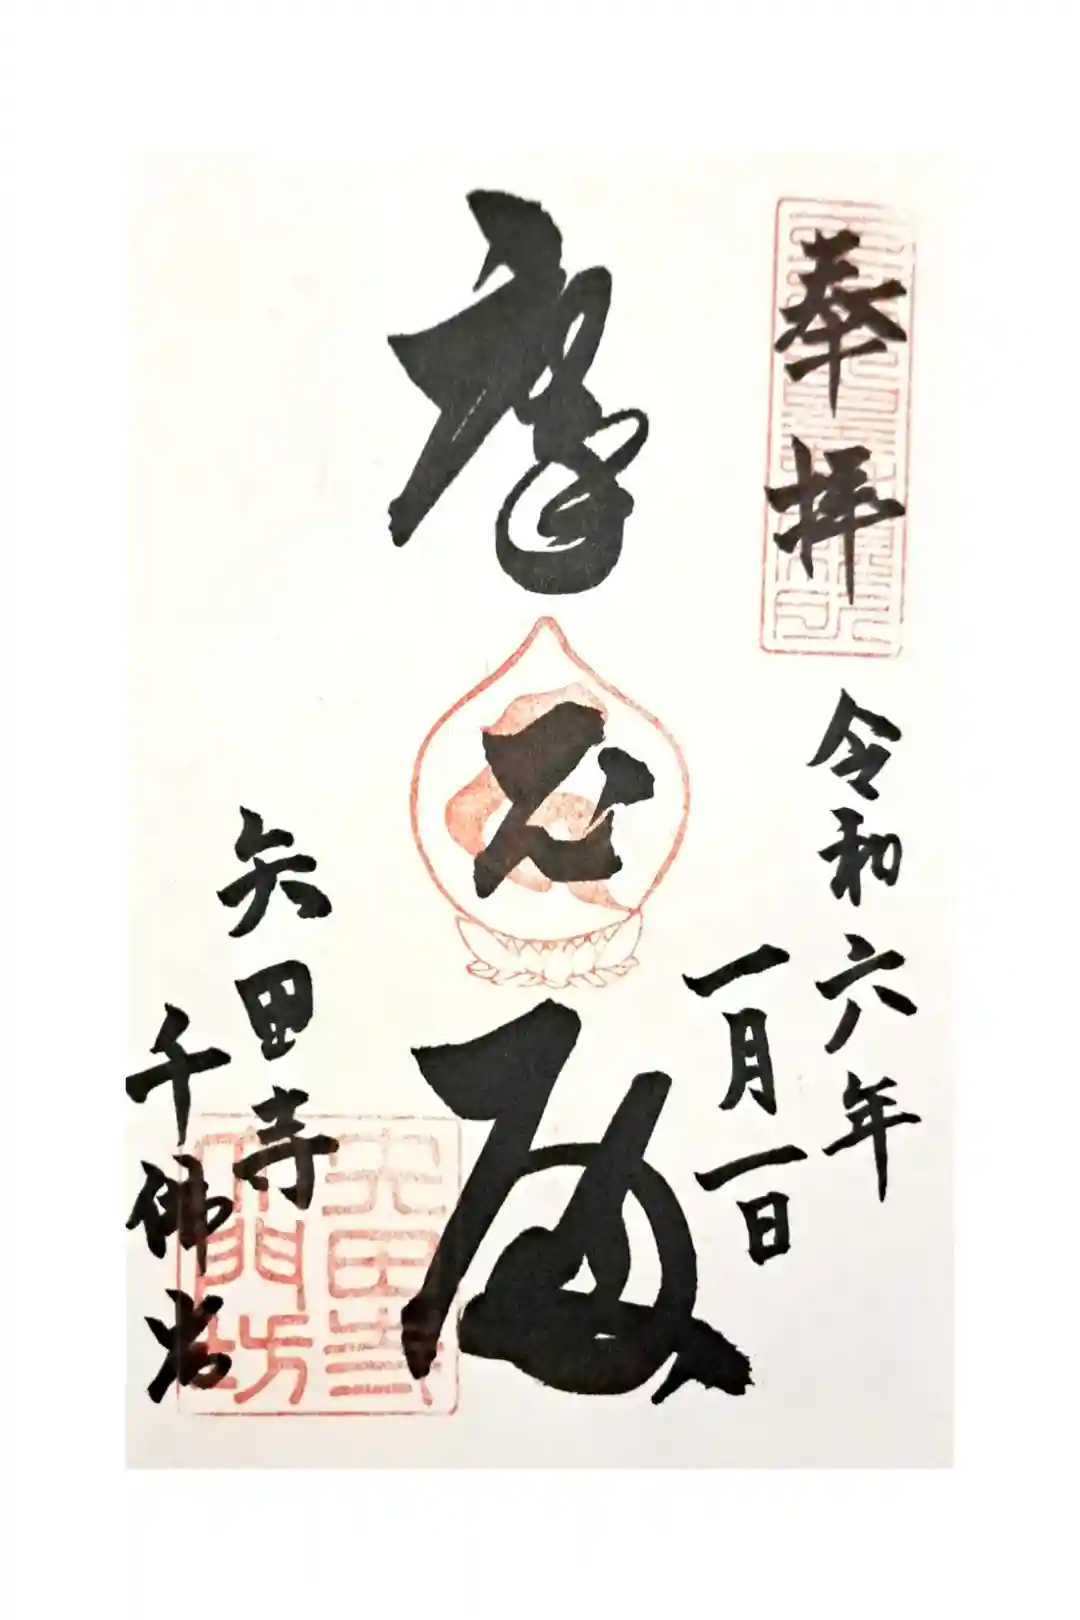 奉拝
令和六年
一月一日
摩尼殿
矢田寺
千佛
矢田寺
大門坊